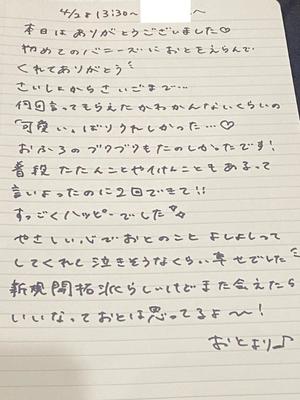 4/28 13:30~ ~
本日はありがとうございました♡
初めてのバニーズにおとをえらんで
くれてありがとう
さいしょからさいごまで…
何回言ってもらえたかわかんないくらいの
「可愛い」ばりうれしかった…♡
おふろのブクブクもたのしかったです!
普段たたんことやイけんこともあるって
言いよったのに2回できて!!
すっごくハッピーでした
やさしい心でおとのことよしよしって
してくれし泣きそうなくらい幸せでした
新規開拓派らしいけどまた会えたら
いいなっておとは思ってるよ〜!
おとより♪